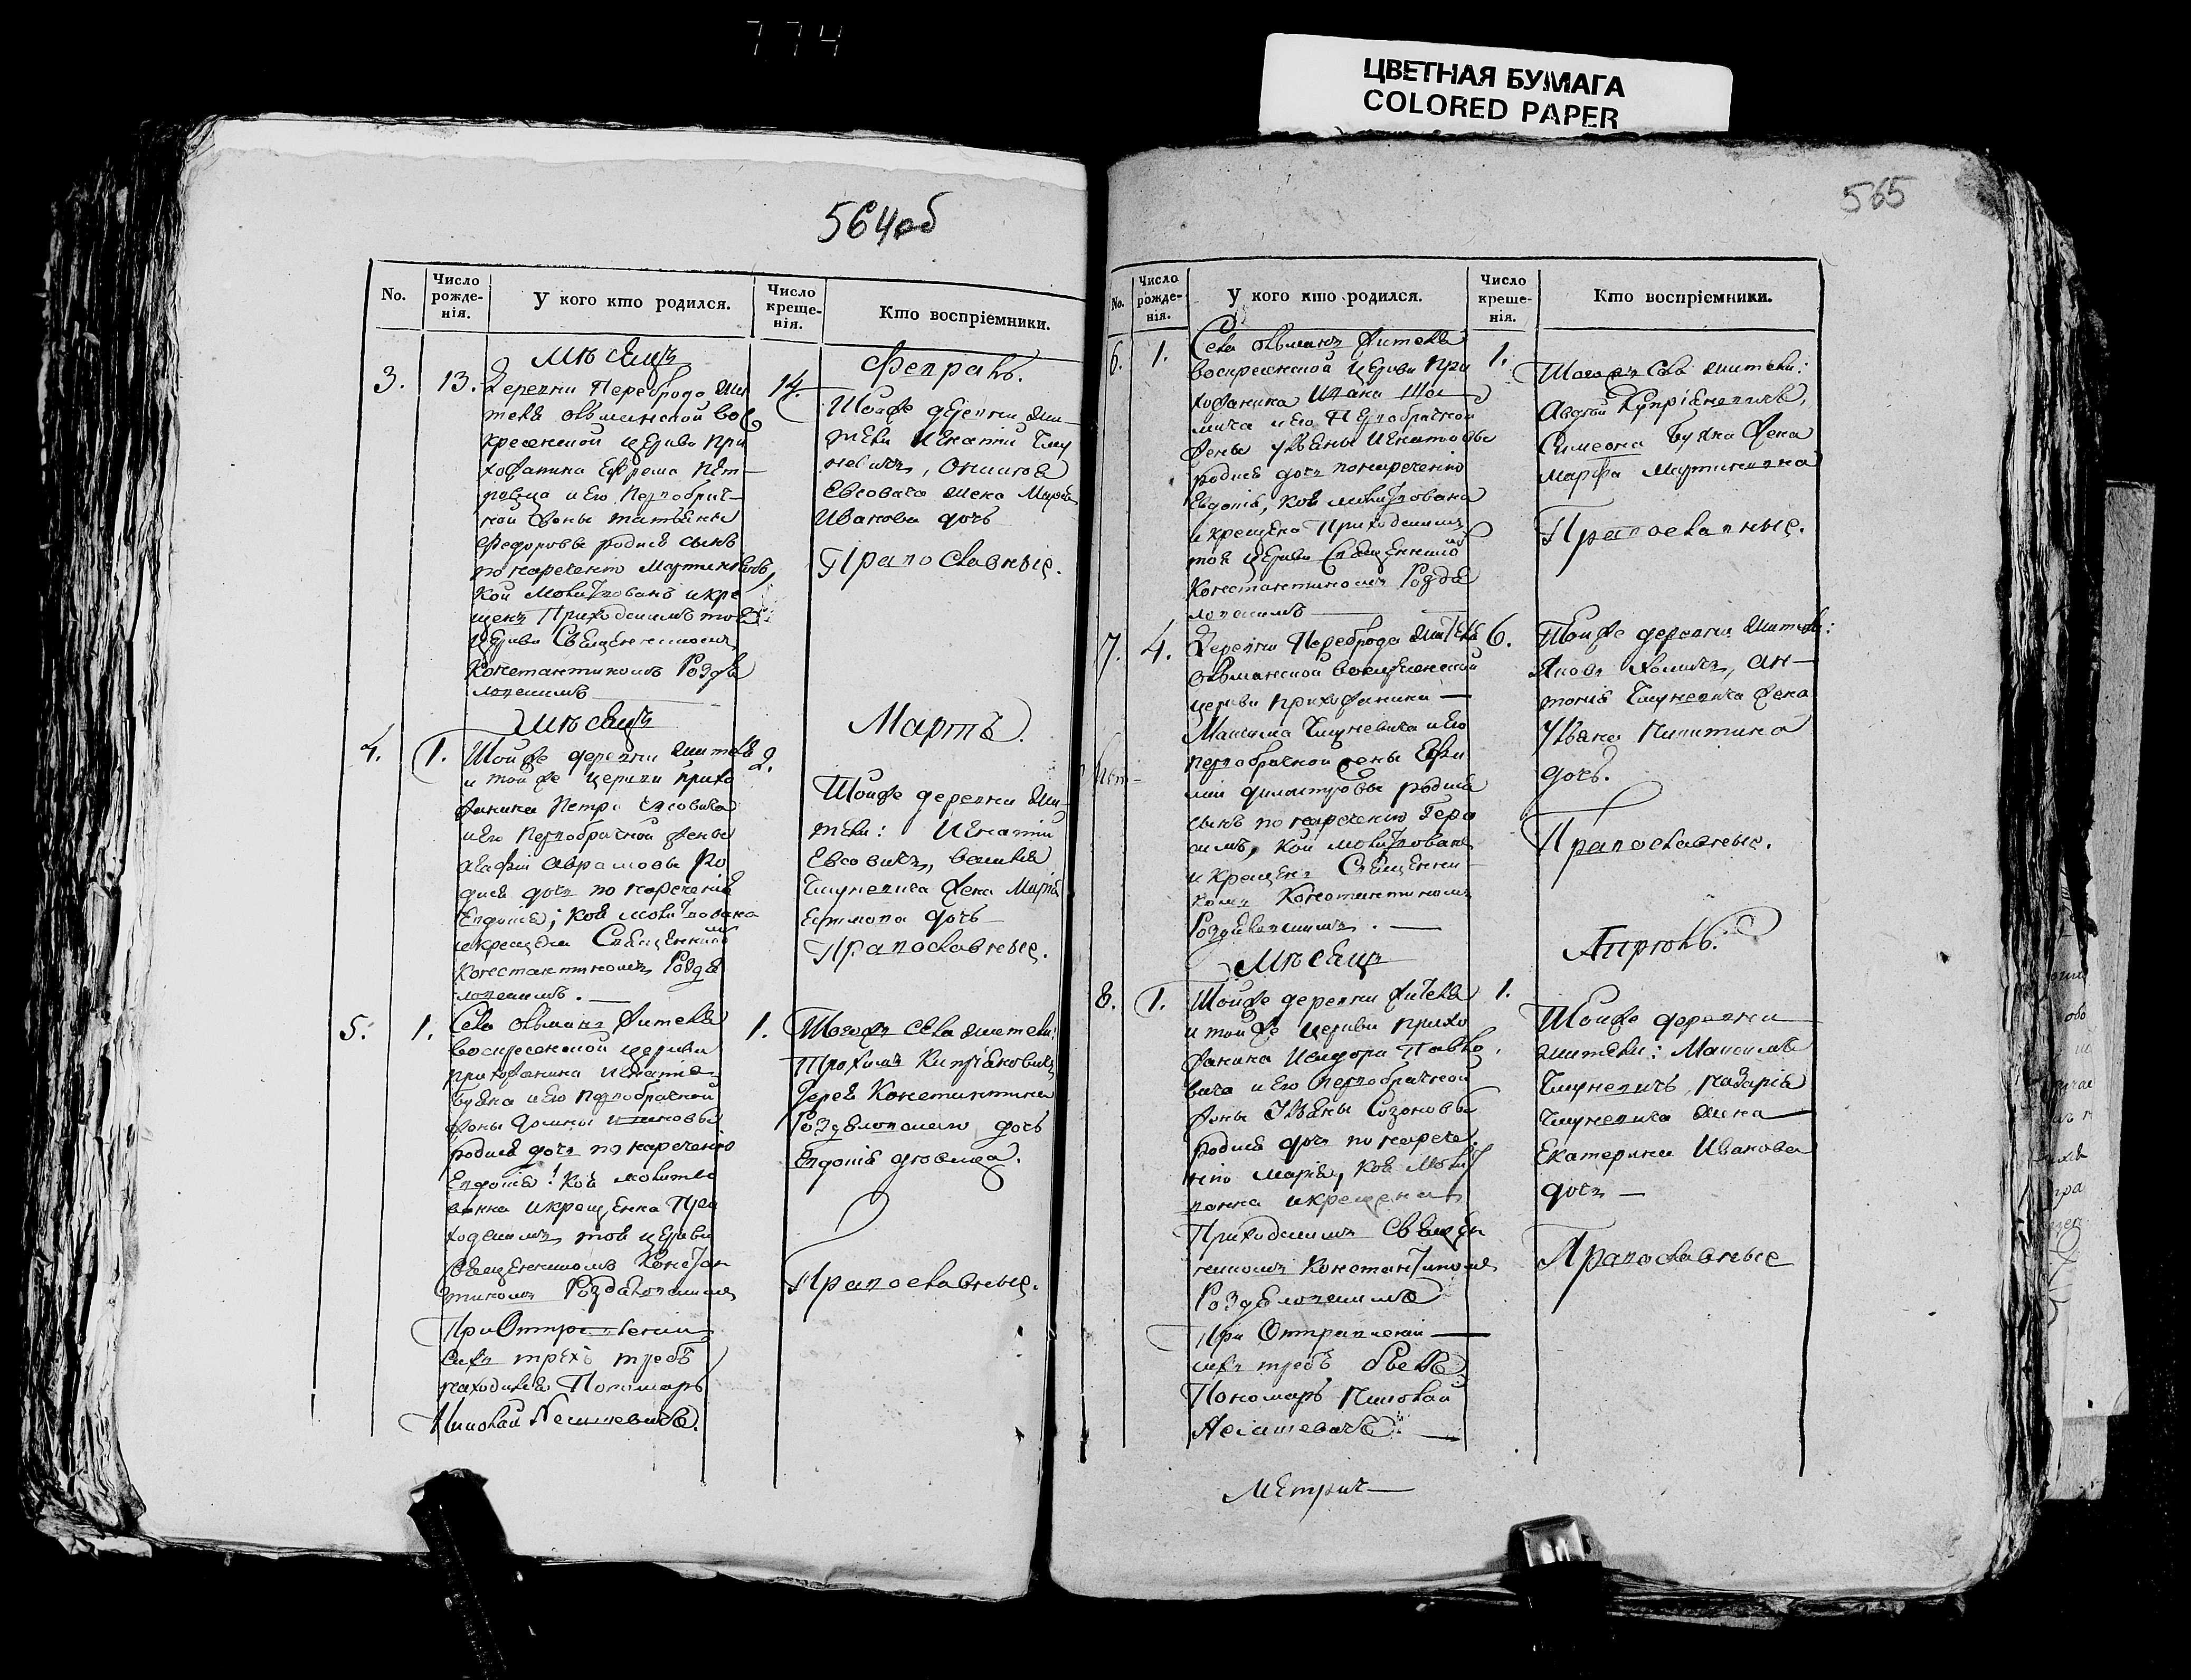 774
ЦВЕТНАЯ БУМАГА
COLORED PAPER
564об
No.
Число рожде-нія.
У кого кто родился.
Число креще-нія.
Кто воспріемники.
Мѣсецъ
Февраль.
3.
13.
Деревни Переброда жи
теля Ольманской Вос
кресенской церкви при
хожанина Ефрема Пет
и его первобрач-
ной жены татьяны
Федоровы родися сынъ
по нареченію Мартинъ
кой молитвованъ и кре
щенъ Приходскимъ тоей
церкви Священникомъ
Константиномъ Роздя
ловскимъ
14.
Тойже деревни жи-
тели Игнатій Чму
невичъ, Онисима
Евсовича жена Марія
Иванова дочь
Православные.
Мѣсецъ
Мартъ.
4.
1.
Тойже деревни жителя
и тойже церкви прихо
жанина Петра Евсовича
и его первобрачной жены
Агафіи Аврамовы ро
дися дочь по нареченію
Евдокія; коя молитвована
и крещена Священникомъ
Константиномъ Роздя
ловскимъ.
2.
Тойже деревни жи-
тели: Игнатій
Евсовичъ,
Чмуневича жена Марія
дочь
Православные.
5.
1.
Села Ольманъ жителя
воскресенской церкви
прихожанина Игнатія
Букна и его первобрачной
жены
родися дочь по нареченію
Евдокія! коя молитво
ванна и крещенна При
ходскимъ той церкви
Священникомъ Констан
тиномъ Роздяловскимъ
1.
Тогожъ села жители:
Трохимъ Кипріяновичъ
Іерея Константина
Роздяловскаго дочь
Евдокія девица.
Православные.
При Отправленіи
сихъ трехъ требъ
находился Пономарь
Николай
565
No.
Число рожде-нія.
У кого кто родился.
Число креще-нія.
Кто воспріемники.
6.
1.
Села Ольманъ жителя
воскресенской церкви при
хожанина
и его первобрачной
жены Ульяны Игнатовы
родися дочь по нареченію
Евдокія, коя молитвована
и крещена Приходскимъ
той церкви Священникомъ
Константиномъ Роздя
ловскимъ
1.
Тогожъ села жители:
Авдей Купріяновичъ,
Симеона Букна жена
Марфа Мартиновна
Православные.
7.
4.
Деревни Переброда жителя
Ольманской воскресенской
церкви прихожанина
Максима Чмуневича и его
первобрачной жены Ефи
міи родися
сынъ по нареченію Гера
симъ, кой молитвованъ
и крещенъ Священни
комъ Константиномъ
Роздяловскимъ.
6.
Тойже деревни жители:
Яковъ Холичъ, Ан-
тонія Чмуневича жена
Уляна Никитина
дочь.
Православные.
Мѣсецъ
Апрѣль.
8.
1.
Тойже деревни жителя
и тойже церкви прихо
жанина Исидора Павко
вича и его первобрачной
жены Ульяны Созоновы
родися дочь по нарече
нію Марія, коя молит
вована и крещена
Приходскимъ Священ
никомъ Константиномъ
Роздяловскимъ
1.
Тойже деревни
жители: Максимъ
Чмуневичъ, Назарія
Чмуневича жена
Екатерина Иванова
дочь
Православные
При Отправленіи
сихъ требъ былъ
Пономарь Николай
Метрич